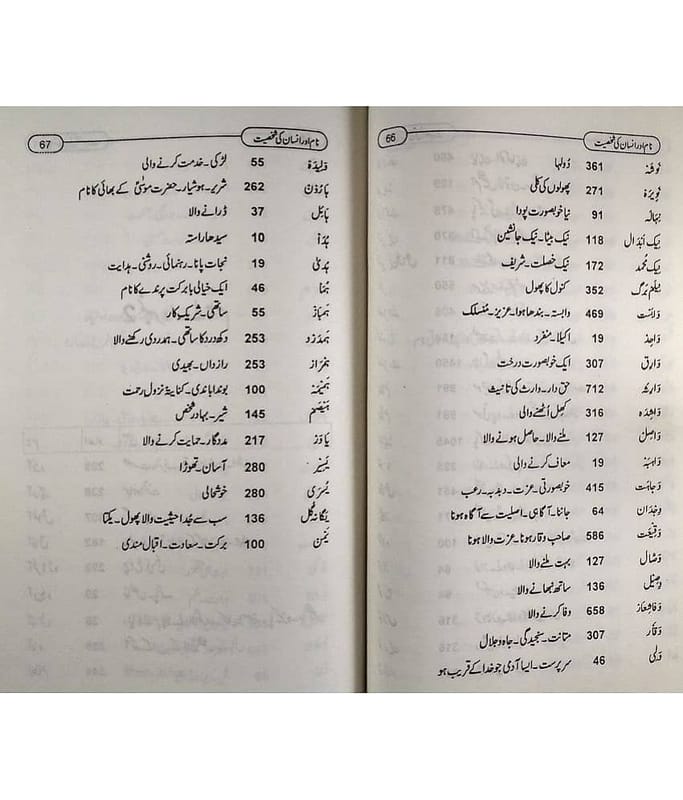 66 نام اور انسان کی شخصیت
نوشہ 361 دُولہا
نویرہ 271 پھولوں کی کلی
نہالہ 91 نیا خوبصورت پودا
نیک ابدال 118 نیک بیٹا۔ نیک جانشین
نیک محمد 172 نیک خصلت۔ شریف
نیلم برگ 352 کنول کا پھول
وابست 469 وابستہ۔ بندھا ہوا۔ عزیز۔ منسلک
واحد 19 اکیلا۔ منفرد
وارق 307 ایک خوبصورت درخت
وارثہ 712 حق دار۔ وارث کی تانیث
واشدہ 316 کھِل اُٹھنے والی
واصل 127 ملنے والا۔ حاصل ہونے والا
واہبہ 19 معاف کرنے والی
وجاہت 415 خوبصورتی۔ عزت۔ دبدبہ۔ رعب
وجدان 64 جاننا۔ آگاہی۔ اصلیت سے آگاہ ہونا
وقیعت 586 صاحب وقار ہونا۔ عزت والا ہونا
وصال 127 بہت ملنے والا
وصیل 136 ساتھ نبھانے والا
وفاشعار 658 وفا کرنے والا
وقار 307 متانت۔ سنجیدگی۔ جاہ و جلال
ولی 46 سرپرست۔ ایسا آدمی جو خدا کے قریب ہو
67 نام اور انسان کی شخصیت
ولیدہ 55 لڑکی۔ خدمت کرنے والی
ہارون 262 شریر۔ ہوشیار۔ حضرت موسیٰؑ کے بھائی کا نام
ہائل 37 ڈرانے والا
ہدا 10 سیدھا راستہ
ہدیٰ 19 نجات پانا۔ رہنمائی۔ روشنی۔ ہدایت
ہما 46 ایک خیالی بابرکت پرندے کا نام
ہمباز 55 ساتھی۔ شریکِ کار
ہمدرد 253 دکھ درد کا ساتھی۔ ہمدردی رکھنے والا
ہمراز 253 رازداں۔ بھیدی
ہمیمہ 100 بوندا باندی۔ کنایۃً نزول رحمت
ہیصم 145 شیر۔ بہادر شخص
یاور 217 مددگار۔ حمایت کرنے والا
یسیر 280 آسان۔ تھوڑا
یسریٰ 280 خوشحالی
یگانہ گل 136 سب سے جُدا حیثیت والا پھول۔ یکتا
یمن 100 برکت۔ سعادت۔ اقبال مندی